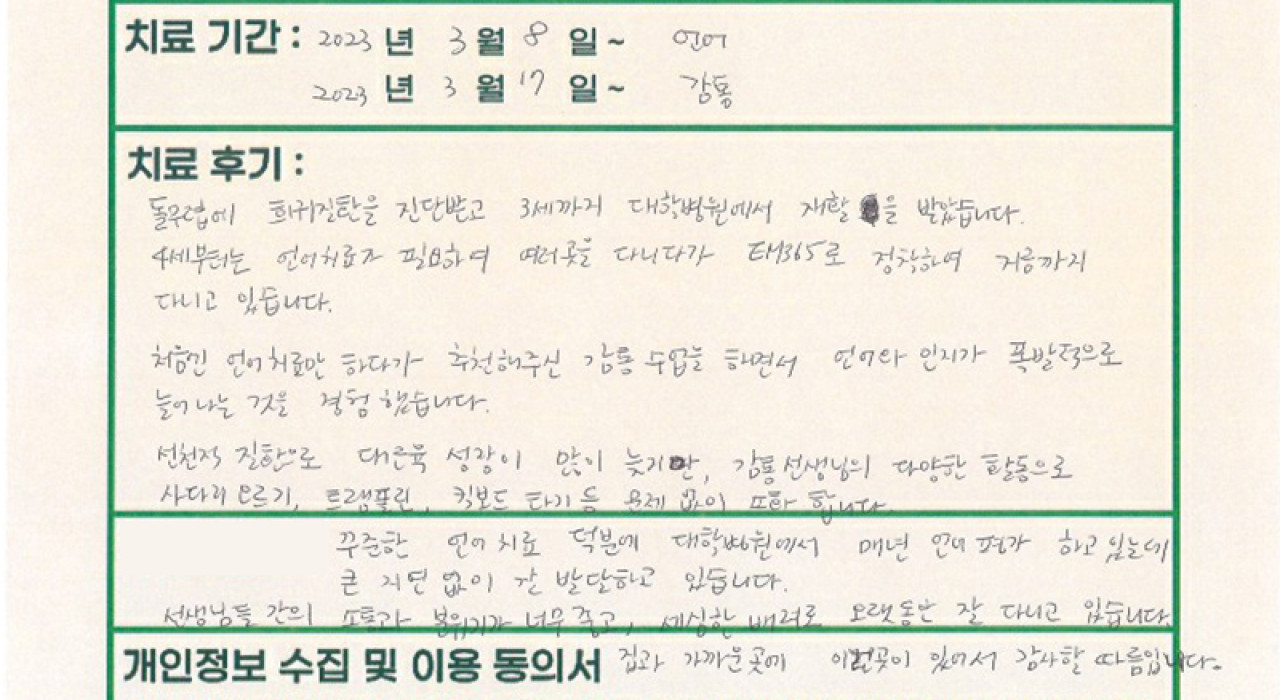 치료 기간 : 2023 년 3 월 8 일 ~ 언어
2023 년 3 월 17 일 ~ 감통
치료 후기 :
돌무렵에 희귀질환을 진단받고 3세까지 대학병원에서 재활을 받았습니다.
4세부터는 언어치료가 필요하여 여러곳을 다니다가 EM365로 정착하여 지금까지
다니고 있습니다.
처음엔 언어치료만 하다가 추천해주신 감통수업을 하면서 언어와 인지가 폭발적으로
늘어나는 것을 경험했습니다.
선천적 질환으로 대근육 성장이 많이 늦지만, 감통선생님의 다양한 활동으로
사다리 오르기, 트램폴린, 킥보드 타기 등 문제 없이 잘 합니다.
꾸준한 언어치료 덕분에 대학병원에서 매년 언어평가 하고 있는데
큰 지연 없이 잘 발달하고 있습니다.
선생님들 간의 소통과 분위기가 너무 좋고, 세심한 배려로 오랫동안 잘 다니고 있습니다.
개인정보 수집 및 이용 동의서 집과 가까운곳에 이런곳이 있어서 감사할 따름입니다.